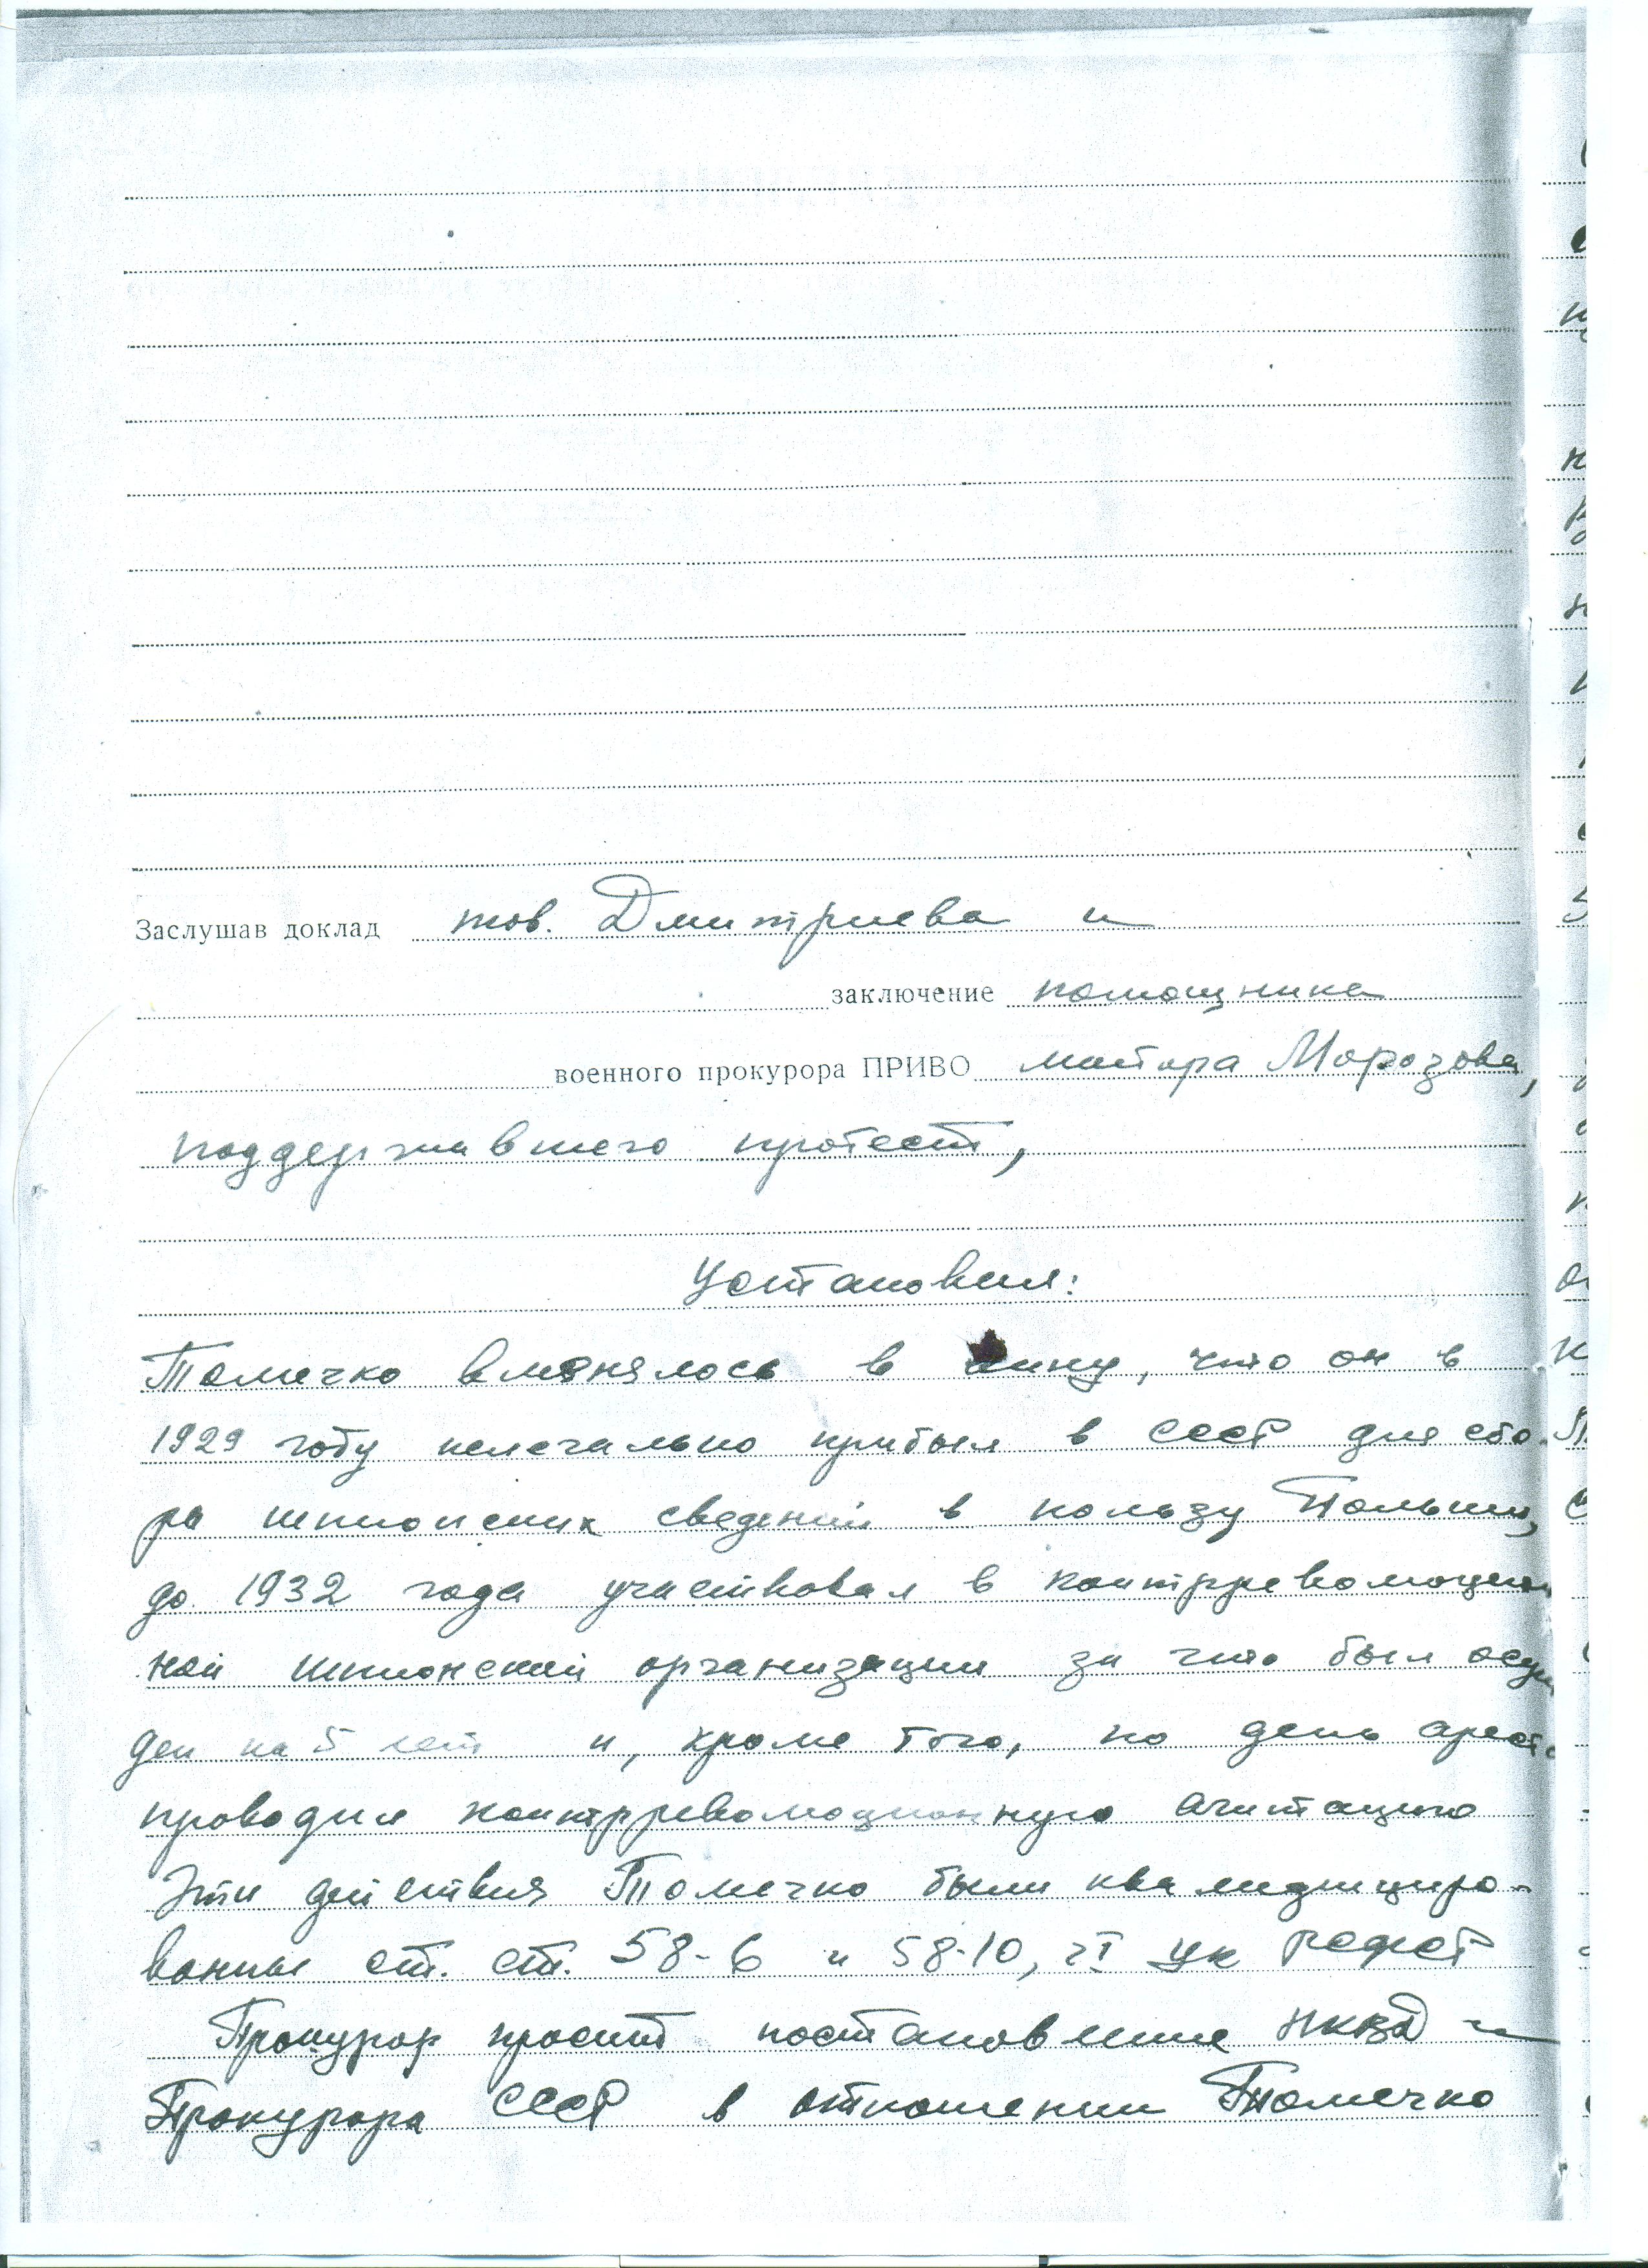 Заслушав доклад тов. Дмитриева и
заключение помощника
военного прокурора ПРИВО майора Морозова,
поддержавшего протест,
установил:
Томечко вменялось в вину, что он в
1929 году нелегально прибыл в СССР для сбо-
ра шпионских сведений в пользу Польши,
до 1932 года участвовал в контрреволюцион
ной шпионской организации за что был осуж
ден на 5 лет и, кроме того, по день ареста
проводил контрреволюционную агитацию
Эти действия Томечко были квалифициро-
ваны ст. ст. 58-6 и 58-10, ч I УК РСФСР
Прокурор просит постановление НКВД и
Прокурора СССР в отношении Томечко